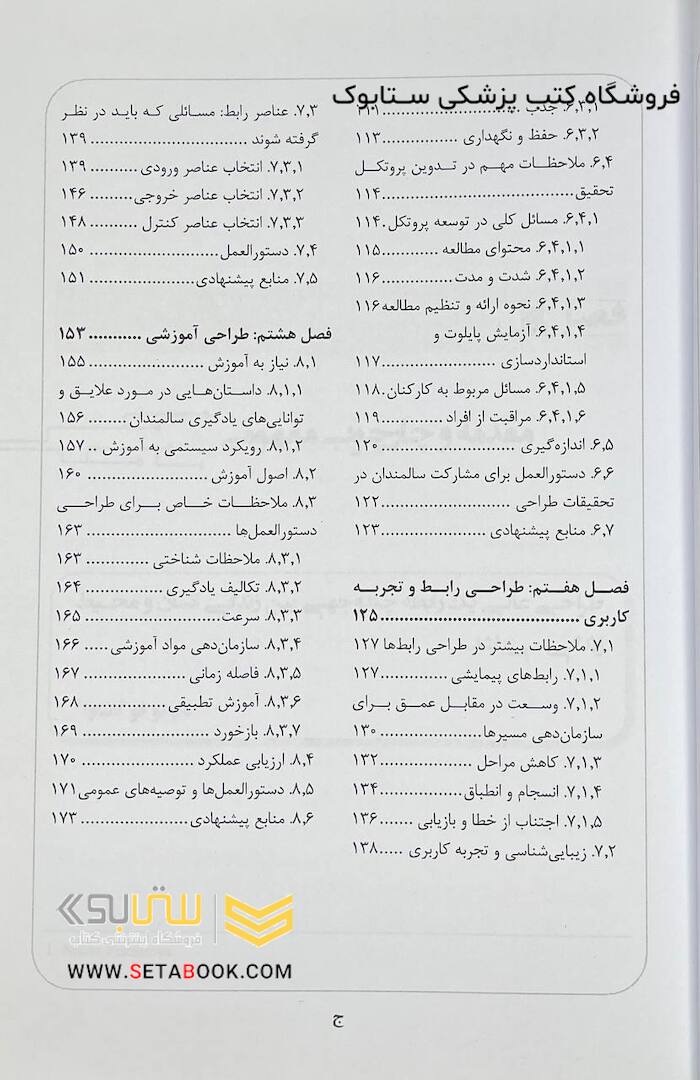 فروشگاه کتب پزشکی ستابوک
۶,۳,۱. جذب .......................... ۱۱۱
۶,۳,۲. حفظ و نگهداری ................ ۱۱۳
۶,۴. ملاحظات مهم در تدوین پروتکل
تحقیق .................................... ۱۱۴
۶,۴,۱. مسائل کلی در توسعه پروتکل. ۱۱۴
۶,۴,۱,۱. محتوای مطالعه ............ ۱۱۵
۶,۴,۱,۲. شدت و مدت ............... ۱۱۶
۶,۴,۱,۳. نحوه ارائه و تنظیم مطالعه ۱۱۶
۶,۴,۱,۴. آزمایش پایلوت و
استانداردسازی ........................ ۱۱۷
۶,۴,۱,۵. مسائل مربوط به کارکنان. ۱۱۸
۶,۴,۱,۶. مراقبت از افراد ............. ۱۱۹
۶,۵. اندازه‌گیری ........................... ۱۲۰
۶,۶. دستورالعمل برای مشارکت سالمندان در
تحقیقات طراحی ........................... ۱۲۲
۶,۷. منابع پیشنهادی ...................... ۱۲۳
فصل هفتم: طراحی رابط و تجربه
کاربری ......................................... ۱۲۵
۷,۱. ملاحظات بیشتر در طراحی رابط‌ها ۱۲۷
۷,۱,۱. رابط‌های پیمایشی .............. ۱۲۷
۷,۱,۲. وسعت در مقابل عمق برای
سازمان‌دهی مسیرها ..................... ۱۳۰
۷,۱,۳. کاهش مراحل .................... ۱۳۲
۷,۱,۴. انسجام و انطباق ................. ۱۳۴
۷,۱,۵. اجتناب از خطا و بازیابی ....... ۱۳۶
۷,۲. زیبایی‌شناسی و تجربه کاربری ..... ۱۳۸
۷,۳. عناصر رابط: مسائلی که باید در نظر
گرفته شوند ................................ ۱۳۹
۷,۳,۱. انتخاب عناصر ورودی .......... ۱۳۹
۷,۳,۲. انتخاب عناصر خروجی ......... ۱۴۶
۷,۳,۳. انتخاب عناصر کنترل .......... ۱۴۸
۷,۴. دستورالعمل ........................... ۱۵۰
۷,۵. منابع پیشنهادی ...................... ۱۵۱
فصل هشتم: طراحی آموزشی ........... ۱۵۳
۸,۱. نیاز به آموزش ....................... ۱۵۵
۸,۱,۱. داستان‌هایی در مورد علایق و
توانایی‌های یادگیری سالمندان ........ ۱۵۶
۸,۱,۲. رویکرد سیستمی به آموزش .. ۱۵۷
۸,۲. اصول آموزش ......................... ۱۶۰
۸,۳. ملاحظات خاص برای طراحی
دستورالعمل‌ها .............................. ۱۶۳
۸,۳,۱. ملاحظات شناختی ............. ۱۶۳
۸,۳,۲. تکالیف یادگیری ................ ۱۶۴
۸,۳,۳. سرعت ............................ ۱۶۵
۸,۳,۴. سازمان‌دهی مواد آموزشی ..... ۱۶۶
۸,۳,۵. فاصله زمانی ..................... ۱۶۷
۸,۳,۶. آموزش تطبیقی ................. ۱۶۸
۸,۳,۷. بازخورد .......................... ۱۶۹
۸,۴. ارزیابی عملکرد ....................... ۱۷۰
۸,۵. دستورالعمل‌ها و توصیه‌های عمومی ۱۷۱
۸,۶. منابع پیشنهادی ...................... ۱۷۳
ستابوک
فروشگاه اینترنتی کتاب
WWW.SETABOOK.COM
ج